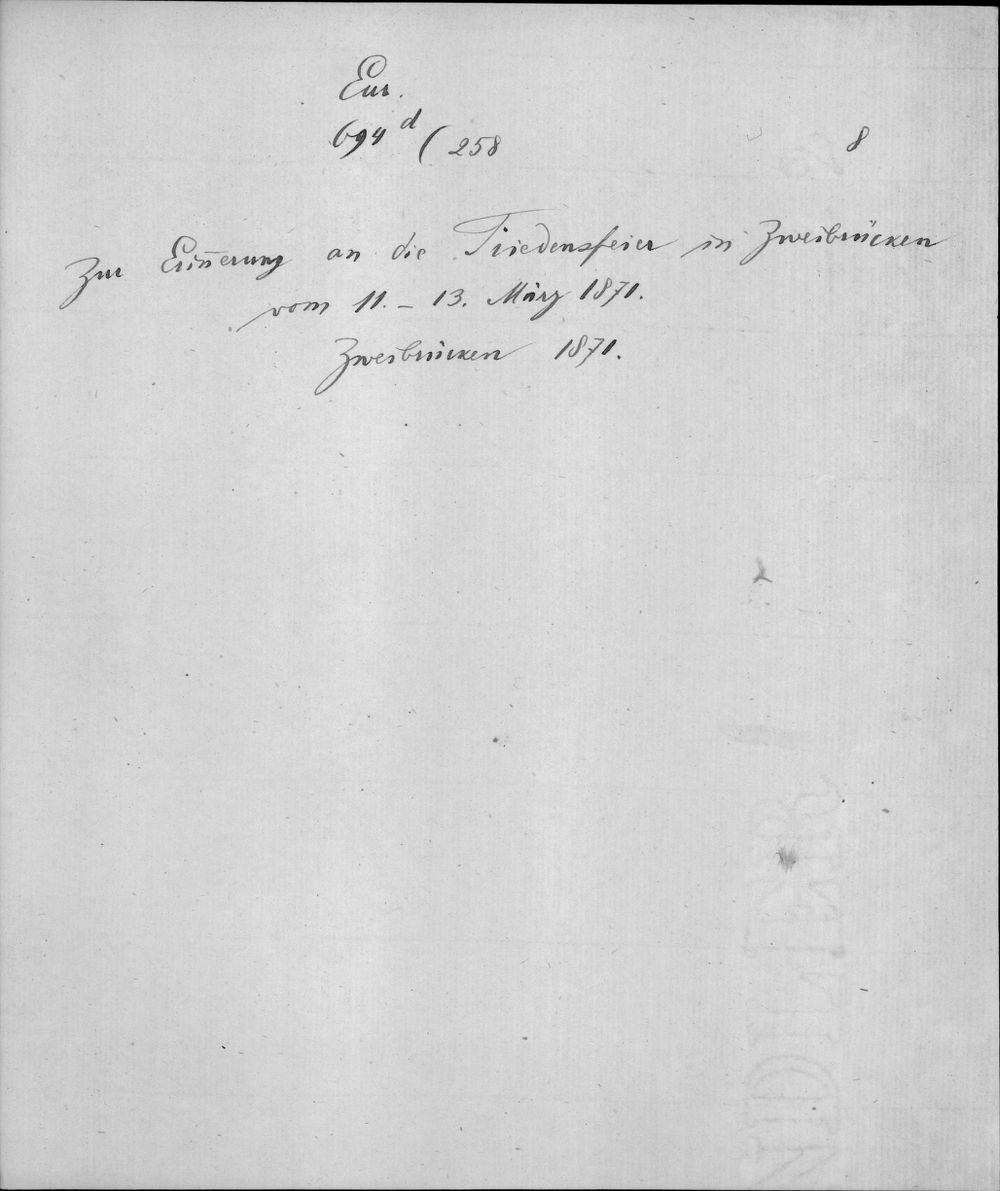 Eur.
694 d (258
8
Zur Erin̅erung an die Friedensfeier in Zweibrücken
vom 11. – 13. März 1871.
Zweibrücken 1871.